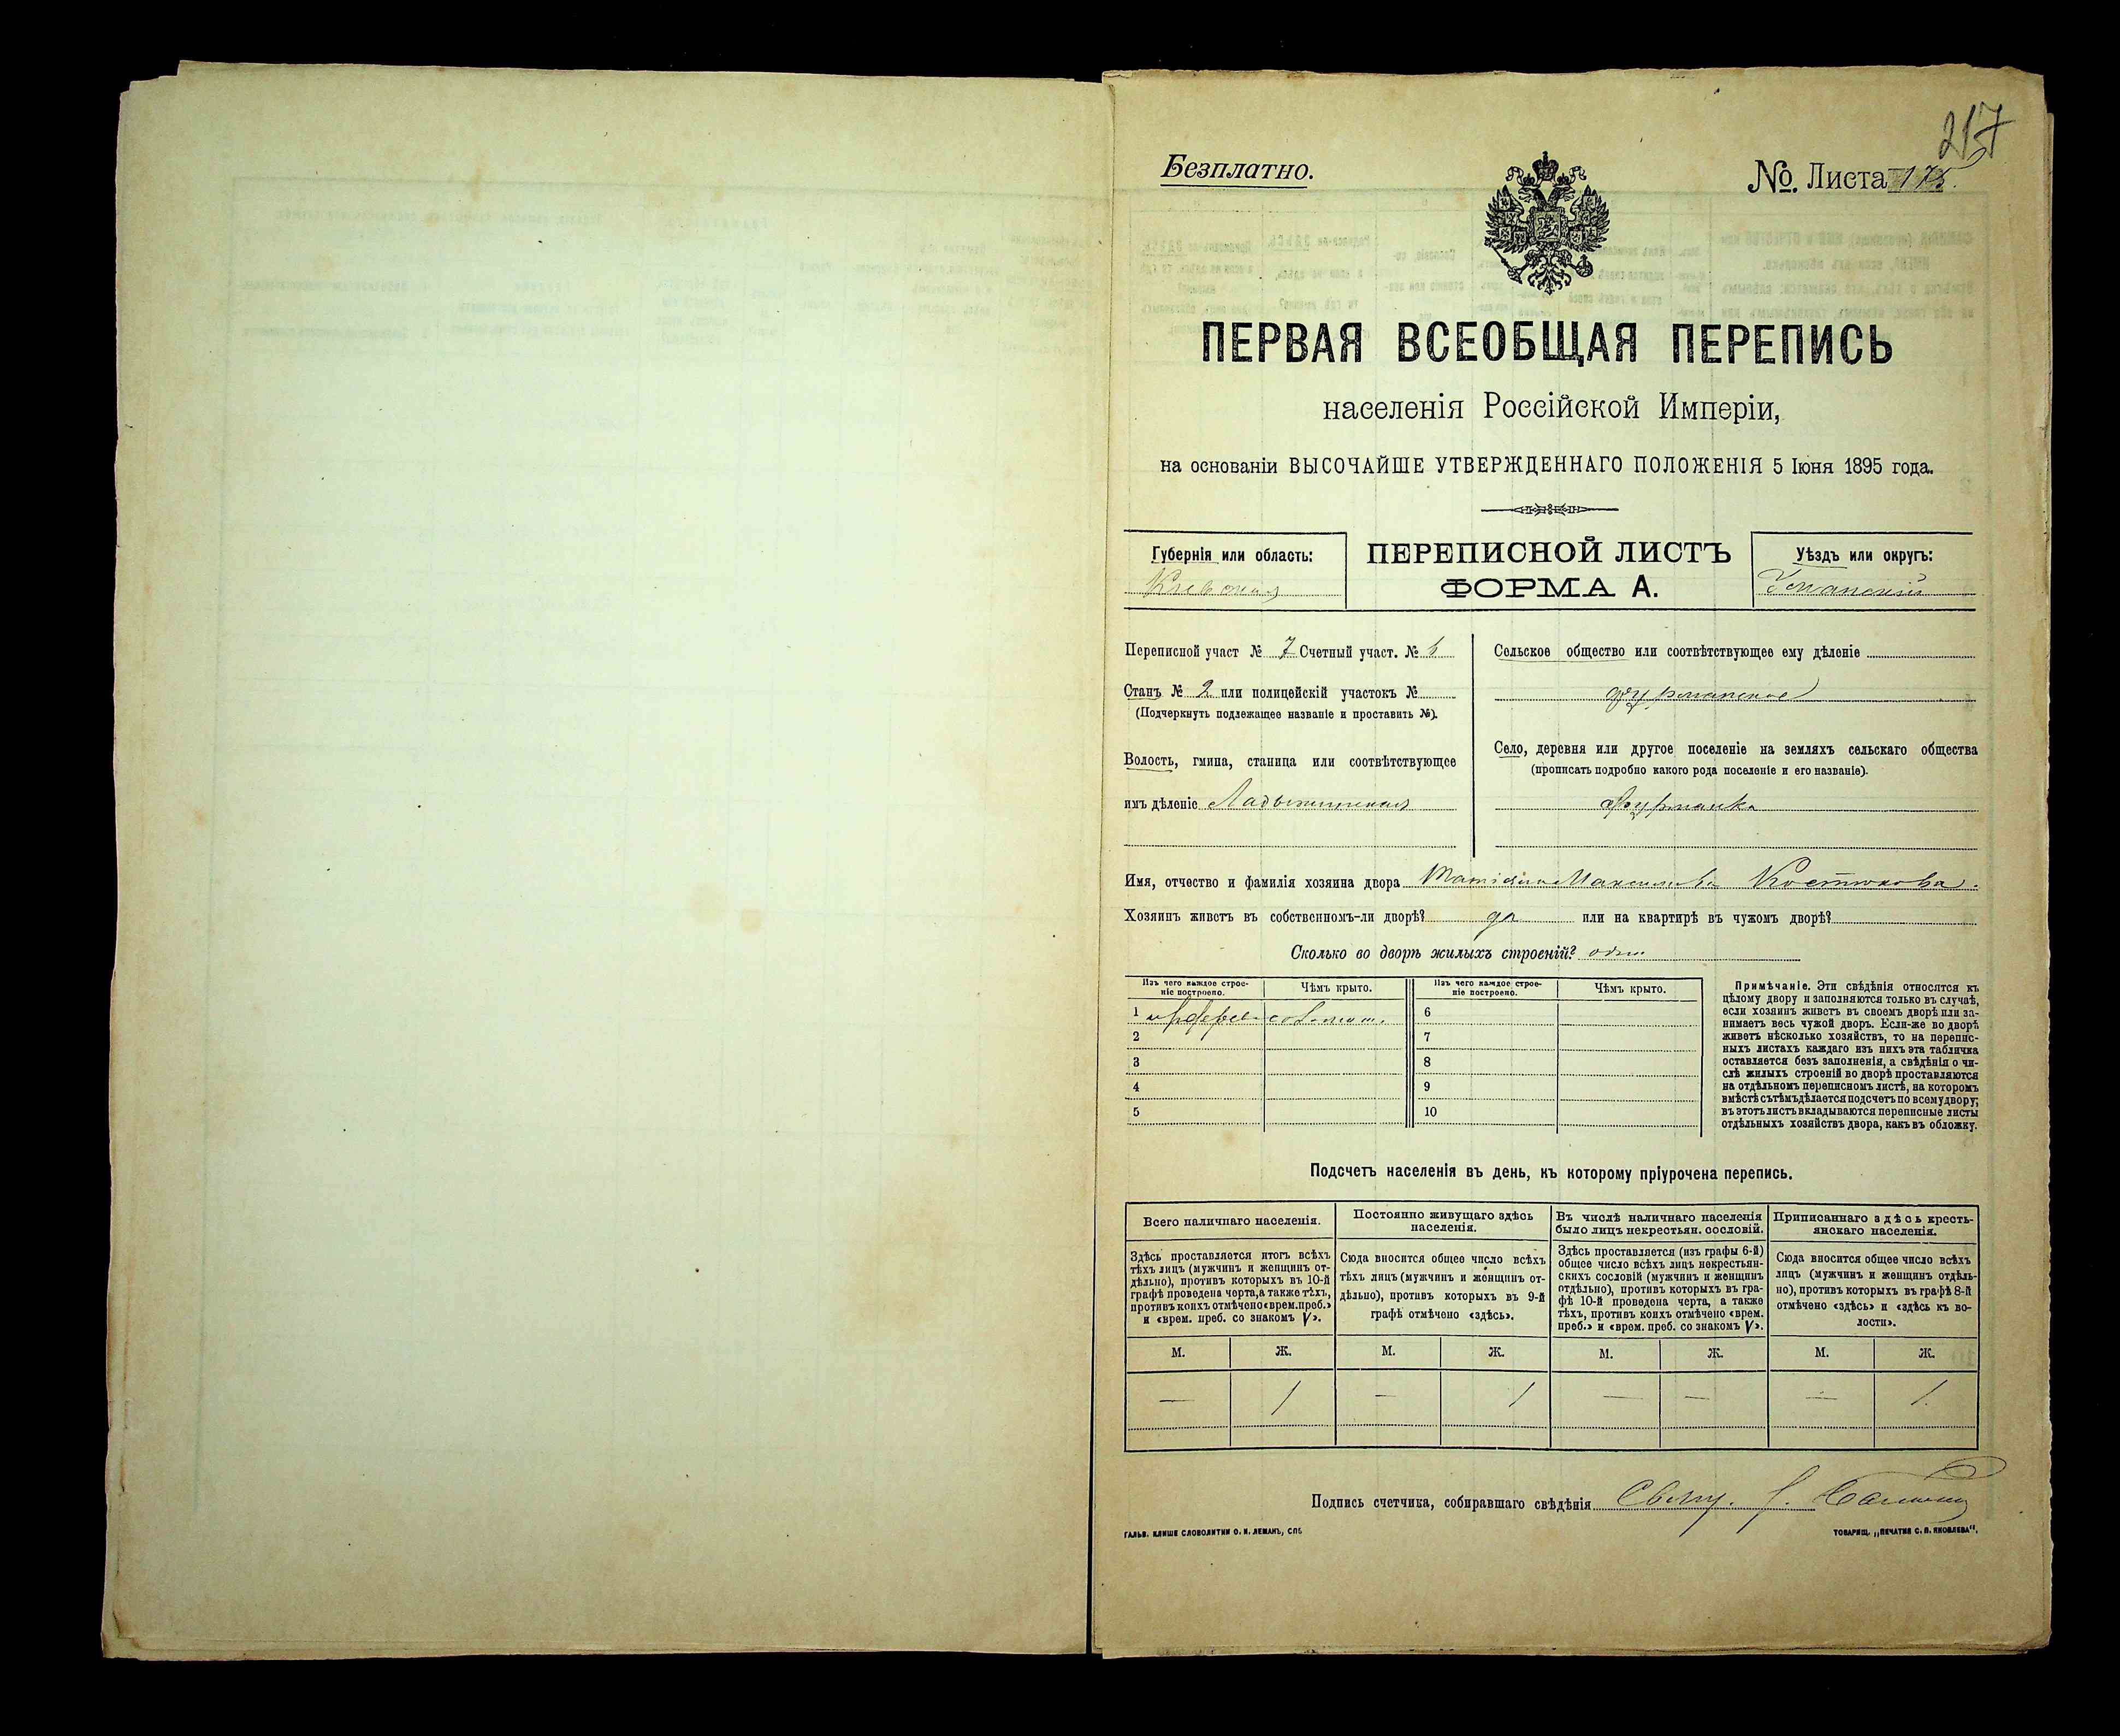 217
Безплатно.
№. Листа 175.
ПЕРВАЯ ВСЕОБЩАЯ ПЕРЕПИСЬ
населенія Россійской Имперіи,
на основаніи ВЫСОЧАЙШЕ УТВЕРЖДЕННАГО ПОЛОЖЕНІЯ 5 Іюня 1895 года.
Губернія или область:
Кіевская
ПЕРЕПИСНОЙ ЛИСТЪ
ФОРМА А.
Уѣздъ или округъ:
Уманскій
Переписной участ № 7 Счетный участ. №
Станъ № 2 или полицейскій участокъ №
(Подчеркнуть подлежащее названіе и проставить №).
Волость, гмина, станица или соотвѣтствующее
имъ дѣленіе Ладыжинская
Сельское общество или соотвѣтствующее ему дѣленіе
Фурманское
Село, деревня или другое поселеніе на земляхъ сельскаго общества
(прописать подробно какого рода поселеніе и его названіе).
Фурманка
Имя, отчество и фамилія хозяина двора Максимова Костюкова.
Хозяинъ живетъ въ собственномъ-ли дворѣ? да или на квартирѣ въ чужомъ дворѣ?
Сколько во дворѣ жилыхъ строеній? одно
Изъ чего каждое строе-
ніе построено.
Чѣмъ крыто.
Изъ чего каждое строе-
ніе построено.
Чѣмъ крыто.
1 соломою.
6
2
7
3
8
4
9
5
10
Примѣчаніе. Эти свѣдѣнія относятся къ
цѣлому двору и заполняются только въ случаѣ,
если хозяинъ живетъ въ своемъ дворѣ или за-
нимаетъ весь чужой дворъ. Если-же во дворѣ
живетъ нѣсколько хозяйствъ, то на перепис-
ныхъ листахъ каждаго изъ нихъ эта табличка
оставляется безъ заполненія, а свѣдѣнія о чи-
слѣ жилыхъ строеній во дворѣ проставляются
на отдѣльномъ переписномъ листѣ, на которомъ
вмѣстѣ съ тѣмъ дѣлается подсчетъ по всему двору;
въ этотъ листъ вкладываются переписные листы
отдѣльныхъ хозяйствъ двора, какъ въ обложку.
Подсчетъ населенія въ день, къ которому пріурочена перепись.
Всего наличнаго населенія.
Здѣсь проставляется итогъ всѣхъ
тѣхъ лицъ (мужчинъ и женщинъ от-
дѣльно), противъ которыхъ въ 10-й
графѣ проведена черта, а также тѣхъ,
противъ коихъ отмѣчено «врем. преб.»
и «врем. преб. со знакомъ V».
Постоянно живущаго здѣсь
населенія.
Сюда вносится общее число всѣхъ
тѣхъ лицъ (мужчинъ и женщинъ от-
дѣльно), противъ которыхъ въ 9-й
графѣ отмѣчено «здѣсь».
Въ числѣ наличнаго населенія
было лицъ некрестьян. сословій.
Здѣсь проставляется (изъ графы 6-й)
общее число всѣхъ лицъ некрестьян-
скихъ сословій (мужчинъ и женщинъ
отдѣльно), противъ которыхъ въ гра-
фѣ 10-й проведена черта, а также
тѣхъ, противъ коихъ отмѣчено «врем.
преб.» и «врем. преб. со знакомъ V».
Приписаннаго здѣсь кресть-
янскаго населенія.
Сюда вносится общее число всѣхъ
лицъ (мужчинъ и женщинъ отдѣль-
но), противъ которыхъ въ графѣ 8-й
отмѣчено «здѣсь» и «здѣсь къ во-
лости».
М. Ж. М. Ж. М. Ж. М. Ж.
— 1 — 1 — — — 1.
Подпись счетчика, собиравшаго свѣдѣнія
ГАЛЬВ. КЛИШЕ СЛОВОЛИТНИ О. И. ЛЕМАНЪ, СПБ.
ТОВАРИЩ. „ПЕЧАТНЯ С. П. ЯКОВЛЕВА".